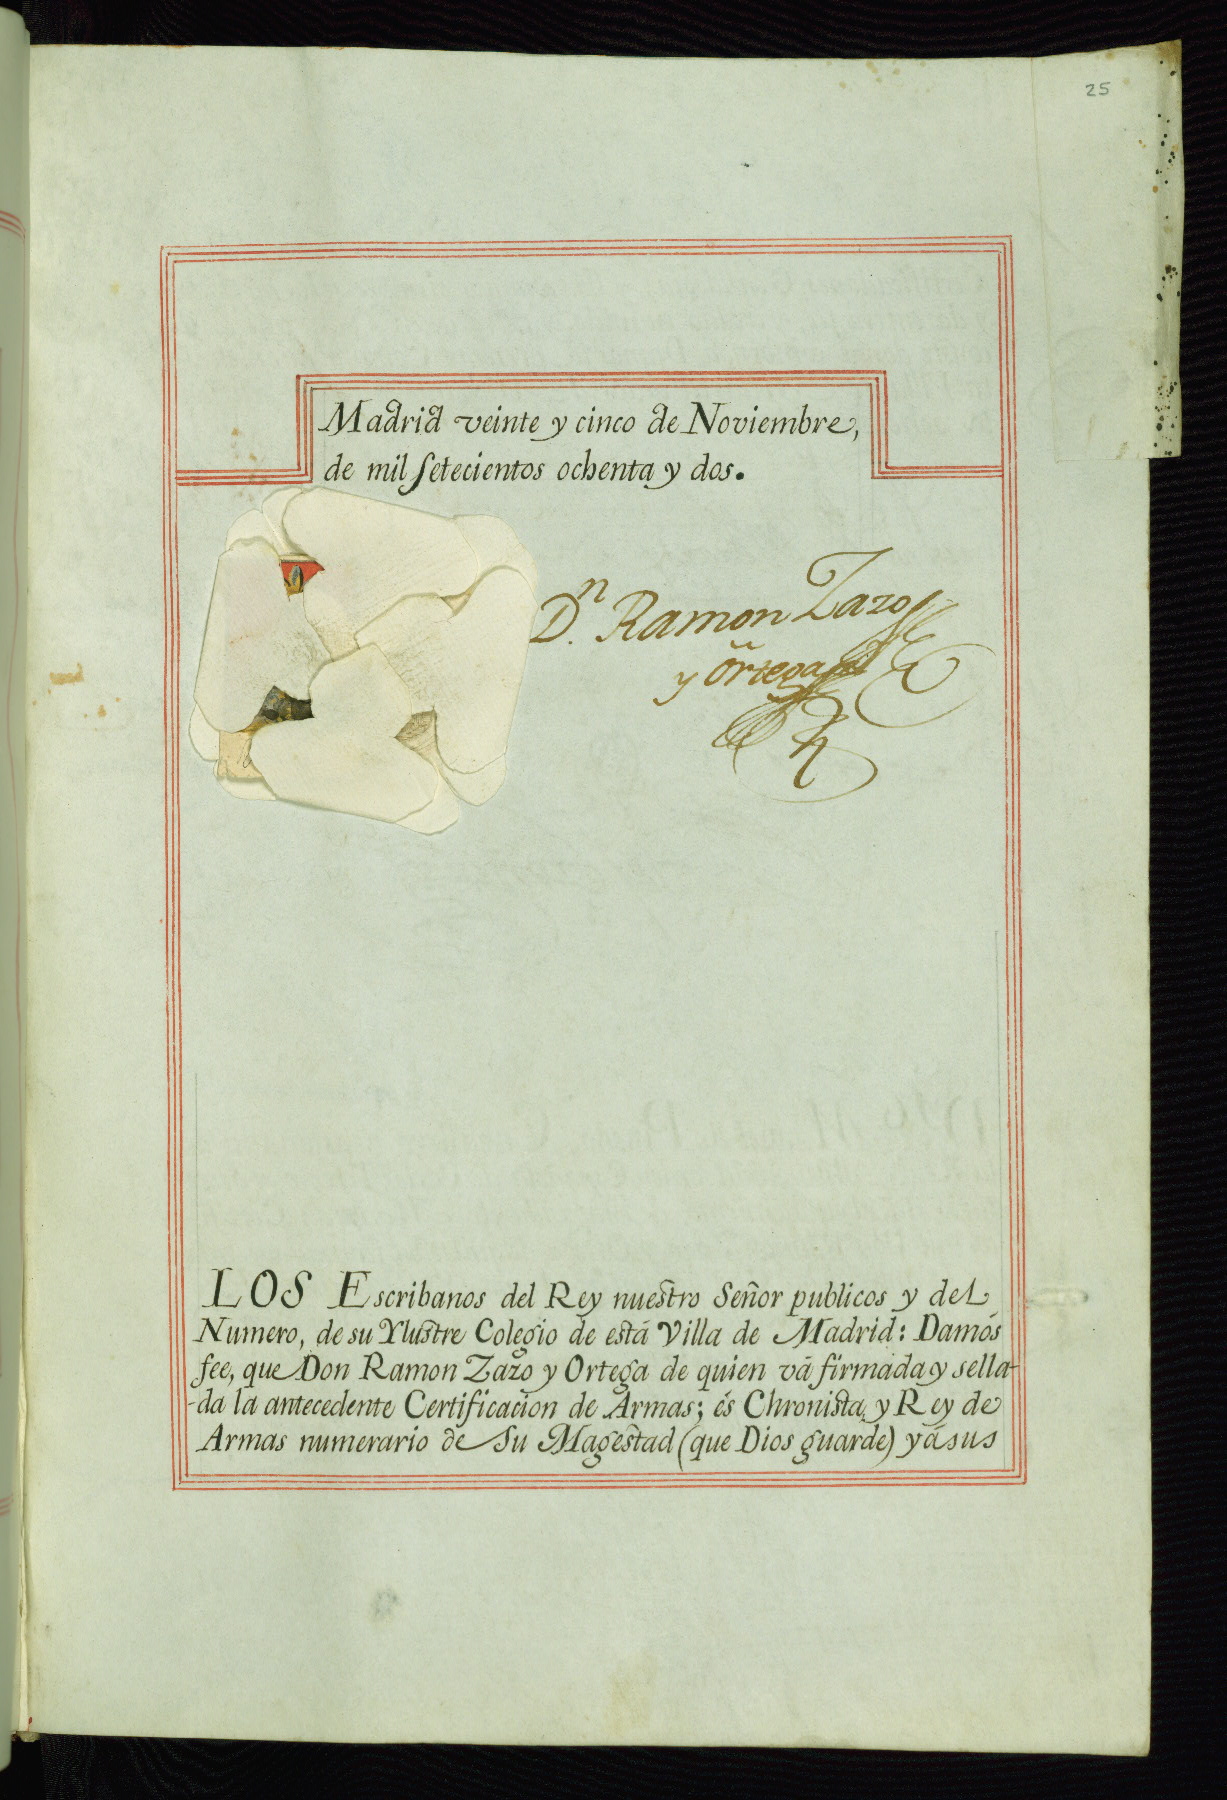 25
Madrid veinte y cinco de Noviembre,
de mil setecientos ochenta y dos.
Dn. Ramon Zazo
y Ortega
LOS Escribanos del Rey nuestro Señor publicos y del
Numero, de su Ylustre Colegio de está Villa de Madrid: Damós
fee, que Don Ramon Zazo y Ortega de quien vá firmada y sella-
-da la antecedente Certificacion de Armas; és Chronista, y Rey de
Armas numerario de Su Magestad (que Dios guarde) y á sus